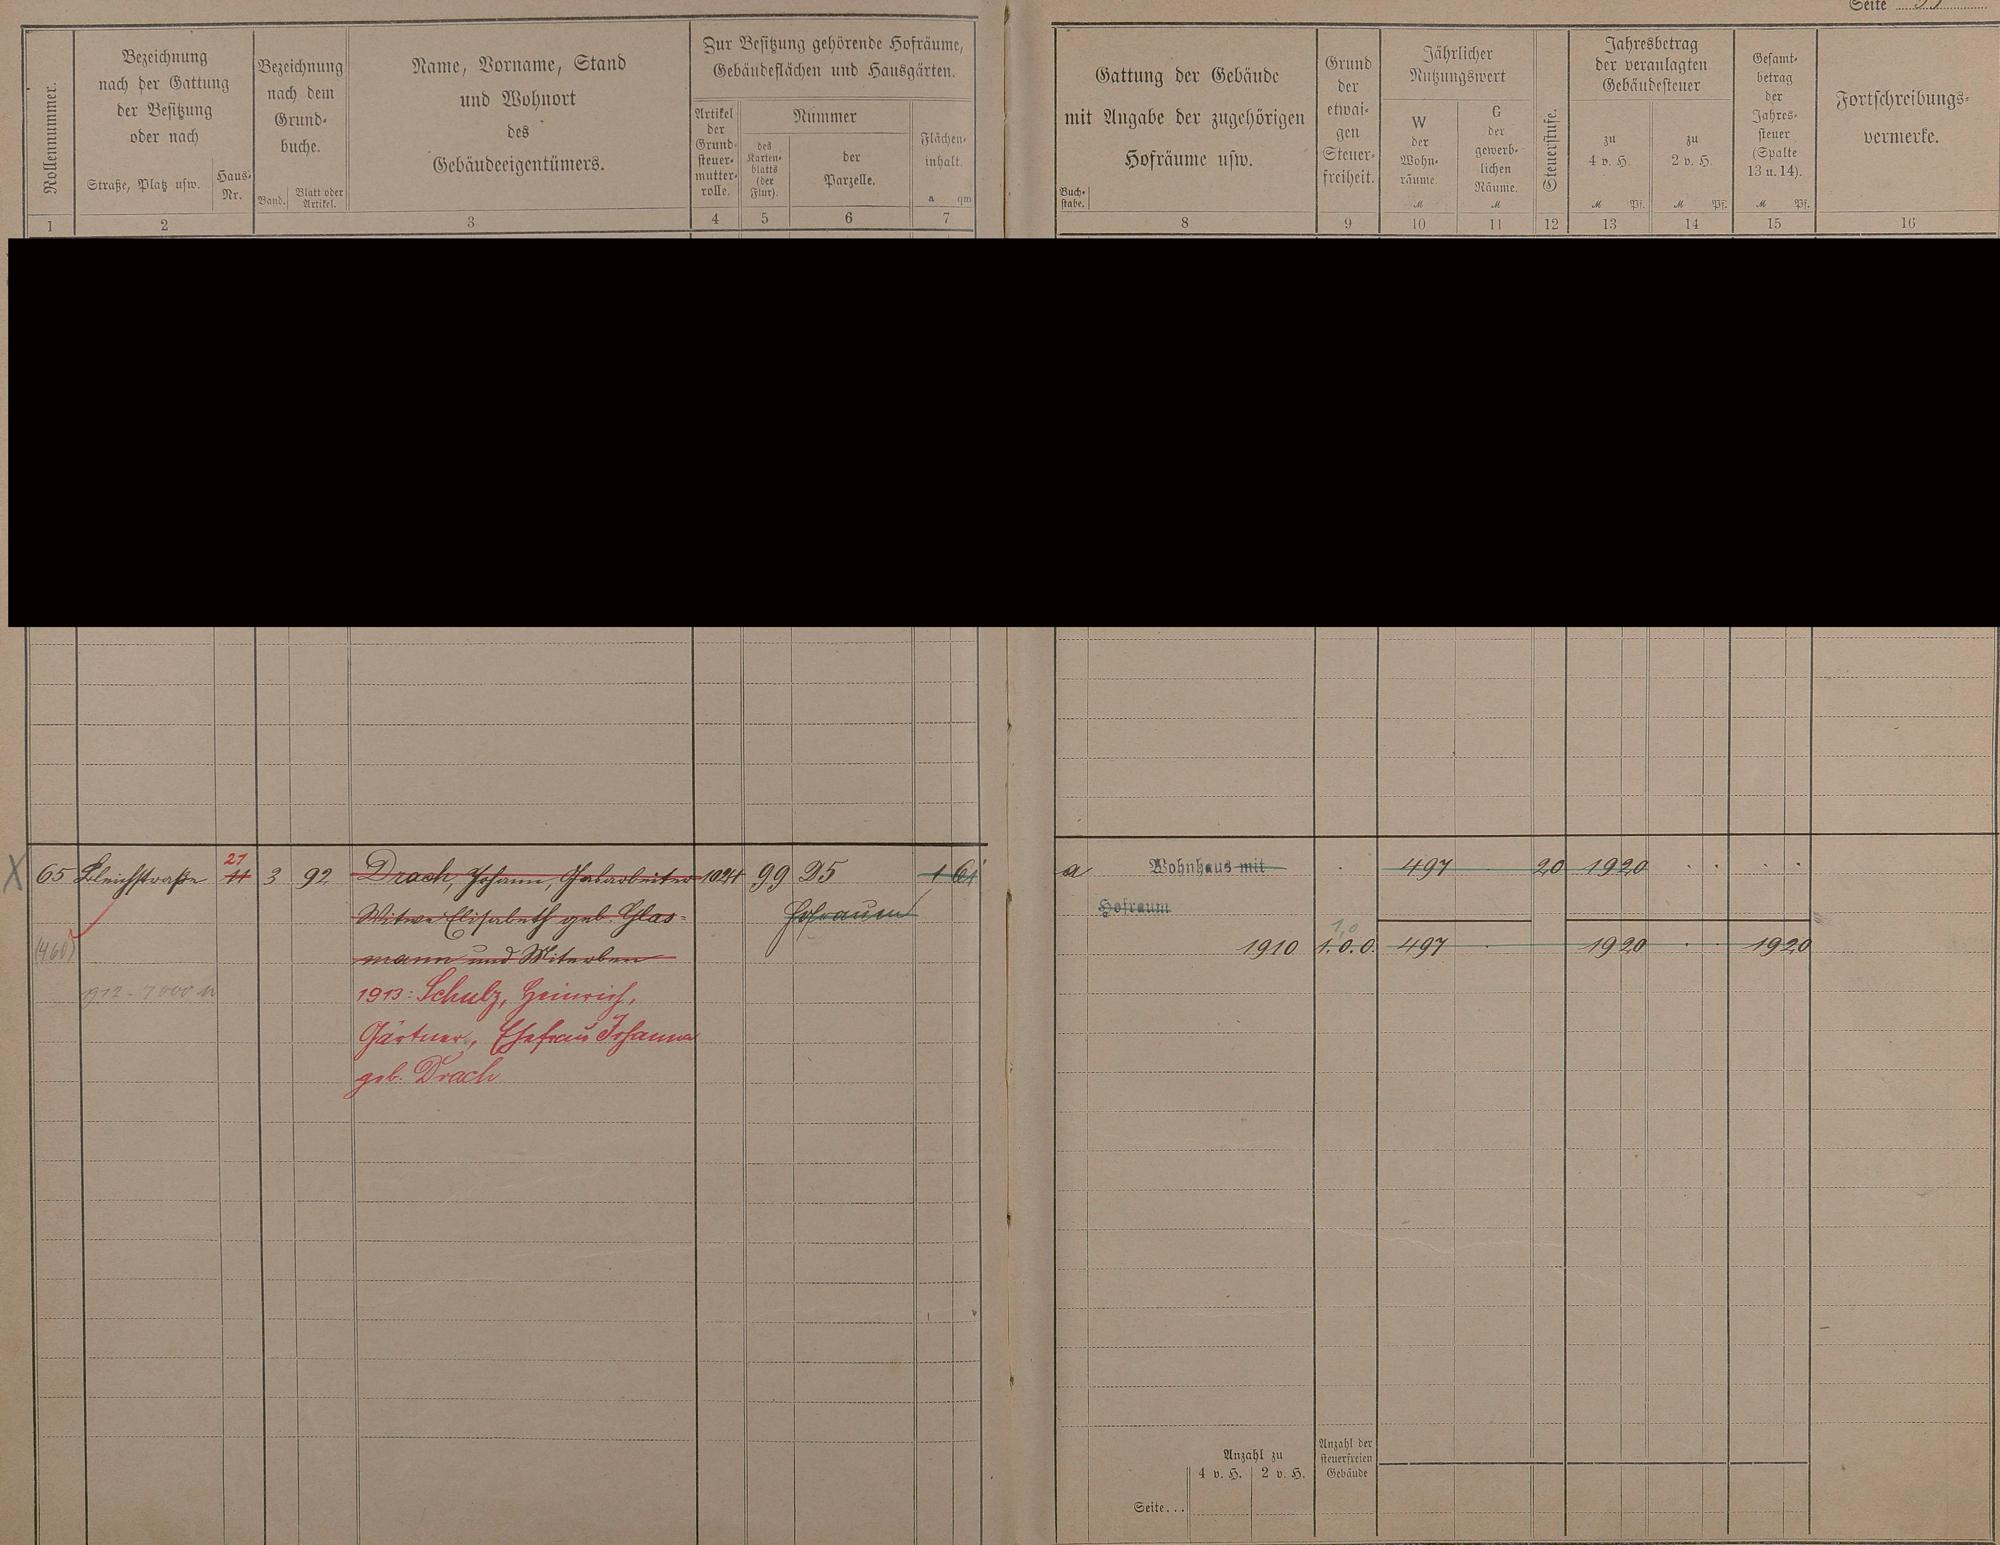 Seite
Rollennummer.
Bezeichnung
nach der Gattung
der Besitzung
oder nach
Straße, Platz usw.
Haus-
Nr.
Bezeichnung
nach dem
Grund-
buche.
Band.
Blatt oder
Artikel.
Name, Vorname, Stand
und Wohnort
des
Gebäudeeigentümers.
Zur Besitzung gehörende Hofräume,
Gebäudeflächen und Hausgärten.
Artikel
der
Grund-
steuer-
mutter-
rolle.
Nummer
des
Karten-
blatts
(der
Flur).
der
Parzelle.
Flächen-
inhalt.
a qm
1 2 3 4 5 6 7
Gattung der Gebäude
mit Angabe der zugehörigen
Hofräume usw.
Buch-
stabe.
Grund
der
etwai-
gen
Steuer-
freiheit.
Jährlicher
Nutzungswert
W
der
Wohn-
räume.
M
G
der
gewerb-
lichen
Räume.
M
Steuerstufe.
Jahresbetrag
der veranlagten
Gebäudesteuer
zu
4 v. H.
M Pf.
zu
2 v. H.
M Pf.
Gesamt-
betrag
der
Jahres-
steuer
(Spalte
13 u. 14).
M Pf.
Fortschreibungs-
vermerke.
8 9 10 11 12 13 14 15 16
X 65 Bleichstraße 11 3 92 Drach, Johann, 1024 99 95 1 61
Witwe Elisabeth geb. Glas-
Hofraum
mann und Miterben
(460)
1912 - 7000 M
1913: Schulz, Heinrich,
Gärtner, Ehefrau Johanna
geb. Drach
a Wohnhaus mit 497 20 19 20
Hofraum
1,0
1910 1. 0. 0. 497 19 20 19 20
Anzahl zu
4 v. H. 2 v. H.
Anzahl der
steuerfreien
Gebäude
Seite...